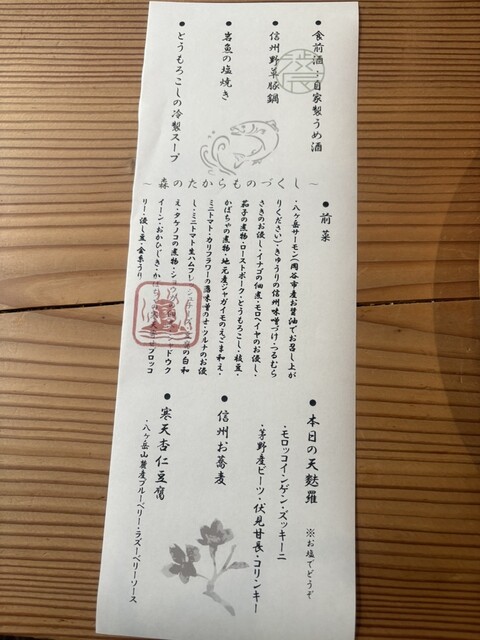 ● 食前酒:自家製うめ酒
● 信州野草豚鍋
● 岩魚の塩焼き
● どうもろこしの冷製スープ
~ 森のたからものづくし ~
● 前菜
・八ヶ岳サーモン(岡谷市産お醤油でお召し上が
りください)・きゅうりの信州味噌づけ・つるむら
さきのお浸し・イナゴの佃煮・モロヘイヤのお浸し・
茄子の煮物・ローストポーク・とうもろこし・枝豆・
かぼちゃの煮物・地元産ジャガイモのえごま和え・
ミニトマト・カリフラワーの・ツルナのお浸
し・ミニトマト生ハム の白和
え・タケノコの煮物・ ドウク
イーン・おかひじき・か ブロッコ
リー・浸し豆・金糸うり
● 本日の天麩羅 ※お塩でどうぞ
・モロッコインゲン・ズッキーニ
・茅野産ビーツ・伏見甘長・コリンキー
● 信州お蕎麦
● 寒天杏仁豆腐
・八ヶ岳山麓産ブルーベリー・ラズーベリーソース